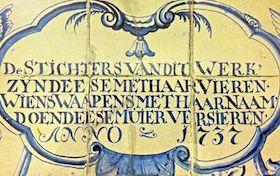 DE STICHTERS VAN DIT WERK
ZYN DEESE MET HAAR VIEREN.
WIENS WAAPENS MET HAAR NAAM
DOEN DEESE MUIER VERSIEREN.
ANNO 1737